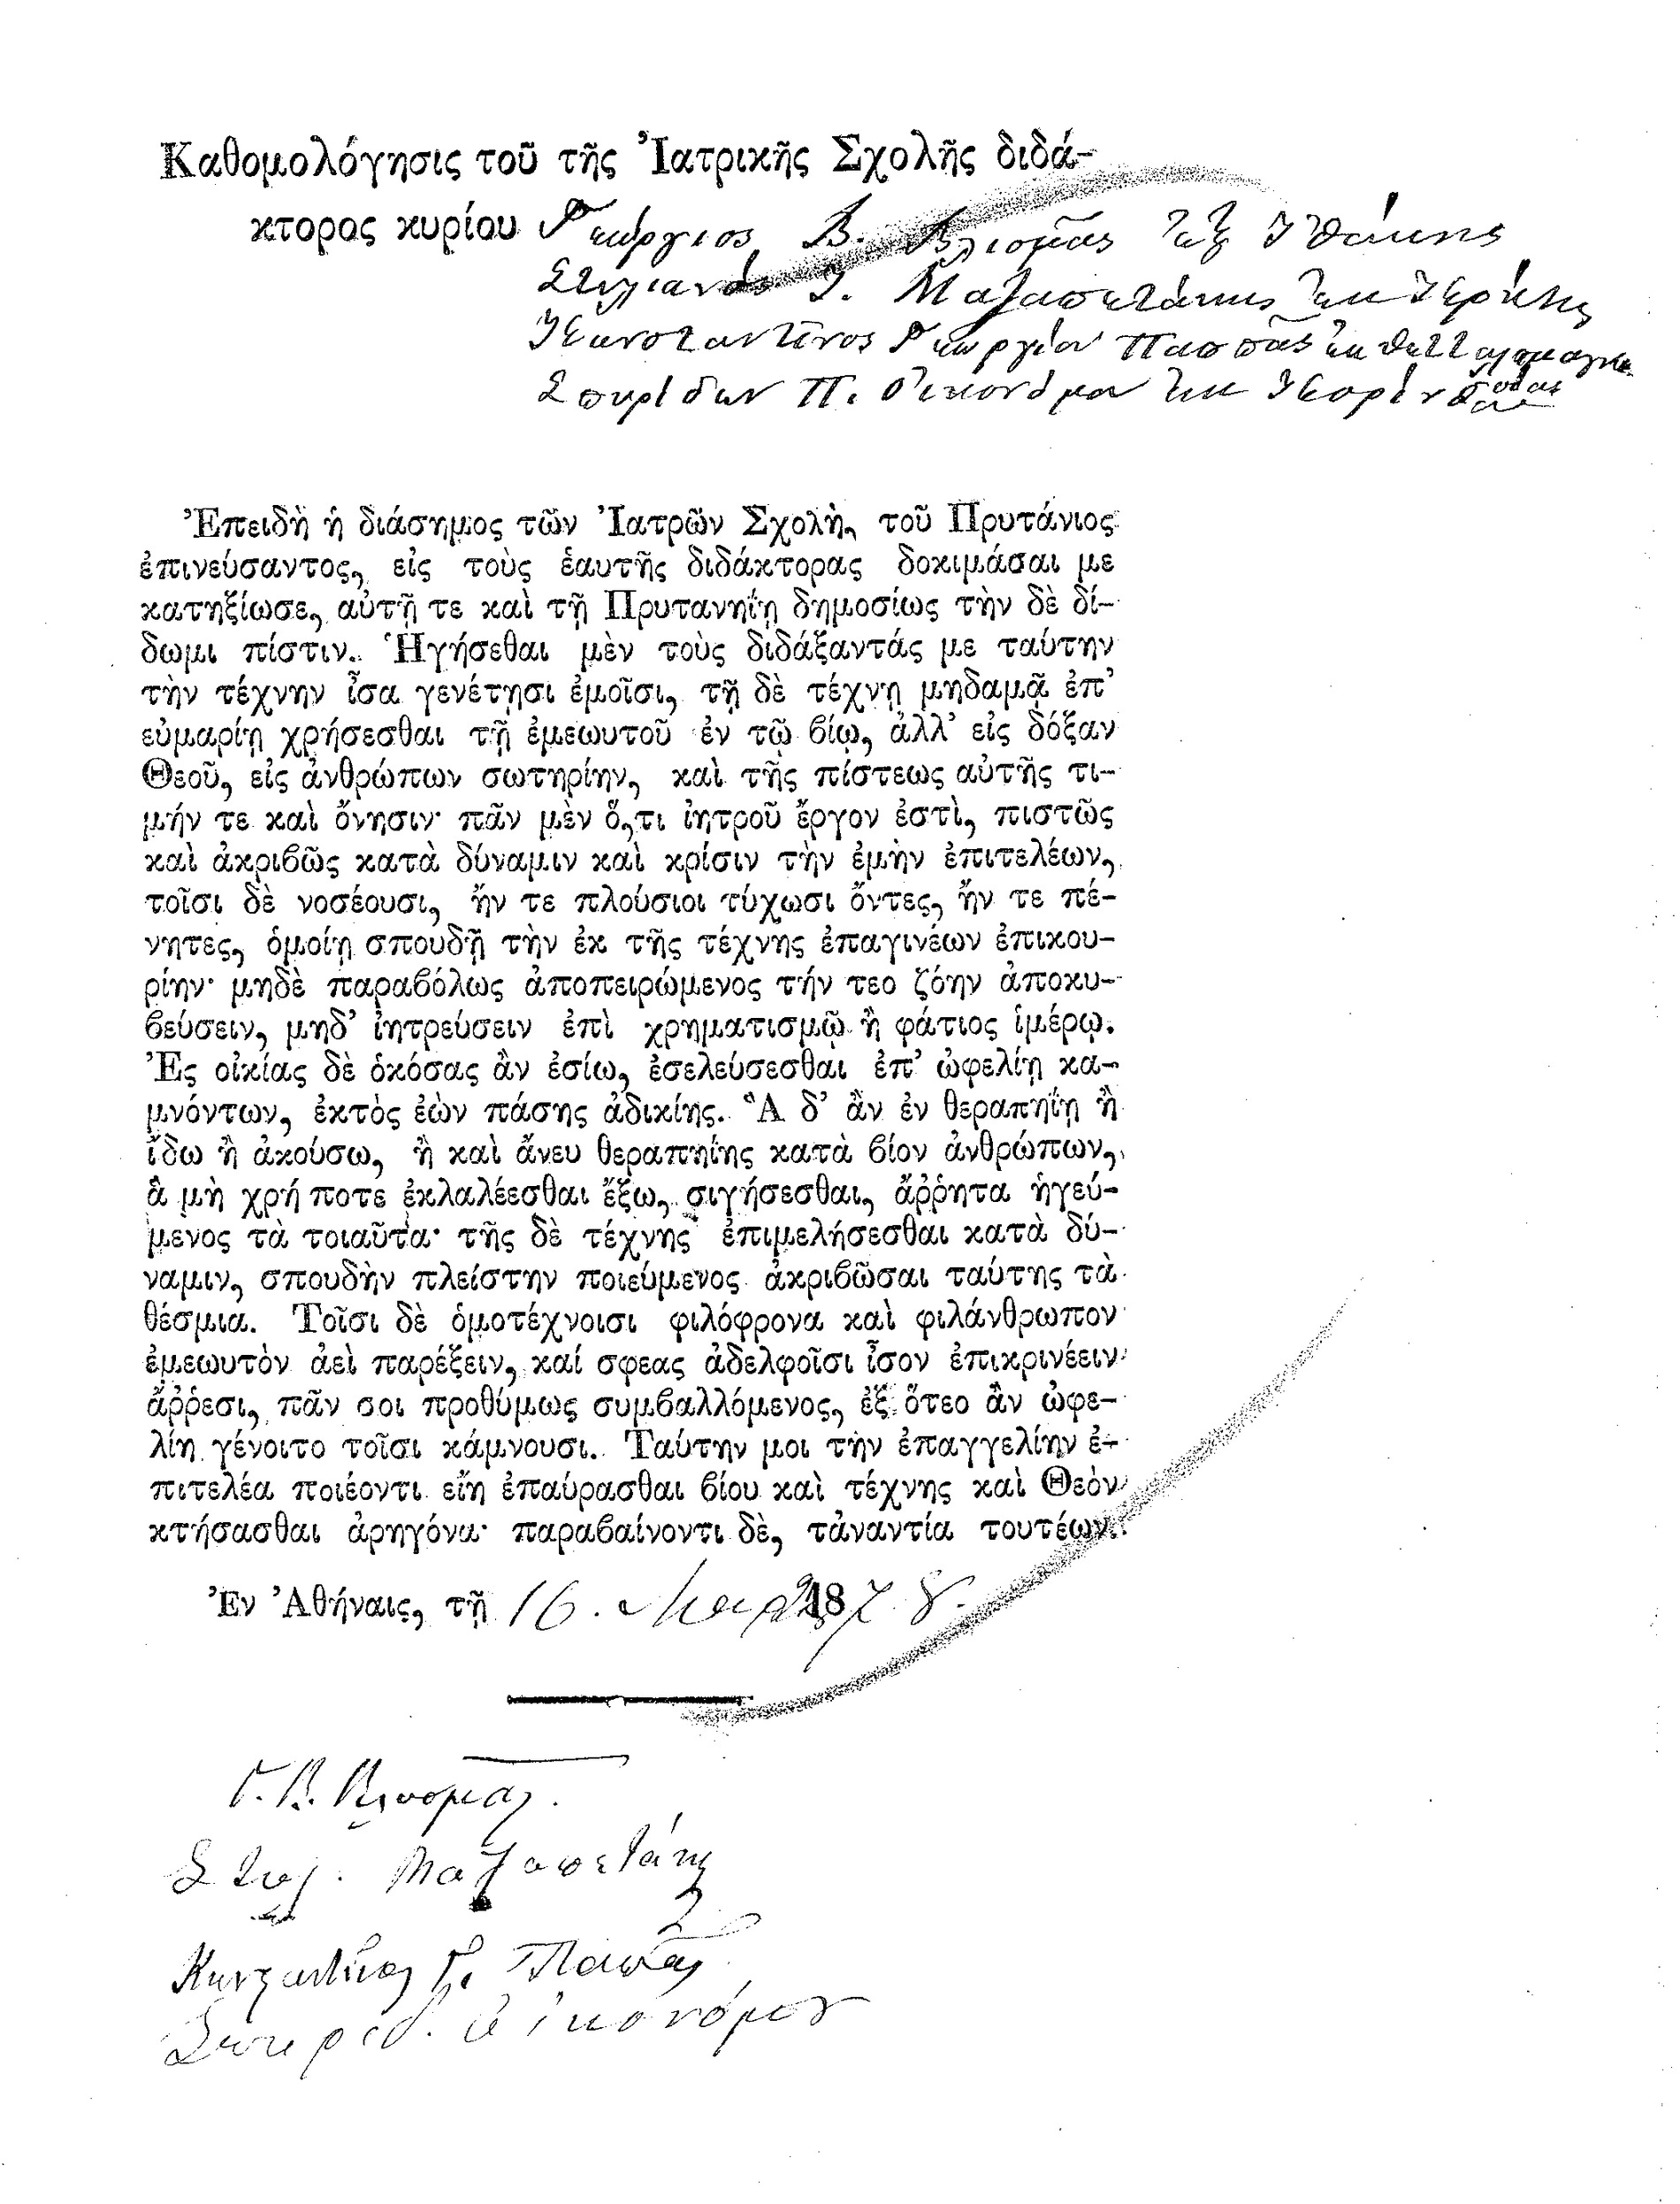 Καθομολόγησις τοῦ τῆς Ἰατρικῆς Σχολῆς διδά-
κτορος κυρίου Γεώργιος Β. Βλισμᾶς ἐξ Ἰθάκης
Στυλιανὸς Ἰ. Μαζαπετάκης ἐκ Κρήτης
Κωνσταντῖνος Γεωργίου Παππᾶς ἐκ
Σπυρίδων Π. Οἰκονόμου ἐκ
Ἐπειδὴ ἡ διάσημος τῶν Ἰατρῶν Σχολὴ, τοῦ Πρυτάνιος
ἐπινεύσαντος, εἰς τοὺς ἑαυτῆς διδάκτορας δοκιμάσαι με
κατηξίωσε, αὐτῇ τε καὶ τῇ Πρυτανηΐῃ δημοσίως τὴν δὲ δί-
δωμι πίστιν. Ἡγήσεθαι μὲν τοὺς διδάξαντάς με ταύτην
τὴν τέχνην ἶσα γενέτῃσι ἐμοῖσι, τῇ δὲ τέχνῃ μηδαμᾷ ἐπ’
εὐμαρίῃ χρήσεσθαι τῇ ἐμεωυτοῦ ἐν τῷ βίῳ, ἀλλ’ εἰς δόξαν
Θεοῦ, εἰς ἀνθρώπων σωτηρίην, καὶ τῆς πίστεως αὐτῆς τι-
μήν τε καὶ ὄνησιν· πᾶν μὲν ὅ,τι ἰητροῦ ἔργον ἐστὶ, πιστῶς
καὶ ἀκριβῶς κατὰ δύναμιν καὶ κρίσιν τὴν ἐμὴν ἐπιτελέων,
τοῖσι δὲ νοσέουσι, ἤν τε πλούσιοι τύχωσι ὄντες, ἤν τε πέ-
νητες, ὁμοίῃ σπουδῇ τὴν ἐκ τῆς τέχνης ἐπαγινέων ἐπικου-
ρίην· μηδὲ παραβόλως ἀποπειρώμενος τήν τεο ζόην ἀποκυ-
βεύσειν, μηδ’ ἰητρεύσειν ἐπὶ χρηματισμῷ ἢ φάτιος ἱμέρῳ.
Ἐς οἰκίας δὲ ὁκόσας ἂν ἐσίω, ἐσελεύσεσθαι ἐπ’ ὠφελίῃ κα-
μνόντων, ἐκτὸς ἐὼν πάσης ἀδικίης. Ἃ δ’ ἂν ἐν θεραπηΐῃ ἢ
ἴδω ἢ ἀκούσω, ἢ καὶ ἄνευ θεραπηΐης κατὰ βίον ἀνθρώπων,
ἃ μὴ χρή ποτε ἐκλαλέεσθαι ἔξω, σιγήσεσθαι, ἄῤῥητα ἡγεύ-
μενος τὰ τοιαῦτα· τῆς δὲ τέχνης ἐπιμελήσεσθαι κατὰ δύ-
ναμιν, σπουδὴν πλείστην ποιεύμενος ἀκριβῶσαι ταύτης τὰ
θέσμια. Τοῖσι δὲ ὁμοτέχνοισι φιλόφρονα καὶ φιλάνθρωπον
ἐμεωυτὸν ἀεὶ παρέξειν, καί σφεας ἀδελφοῖσι ἶσον ἐπικρινέειν
ἄῤῥεσι, πᾶν σοι προθύμως συμβαλλόμενος, ἐξ ὅτεο ἂν ὠφε-
λίη γένοιτο τοῖσι κάμνουσι. Ταύτην μοι τὴν ἐπαγγελίην ἐ-
πιτελέα ποιέοντι εἴη ἐπαύρασθαι βίου καὶ τέχνης καὶ Θεὸν
κτήσασθαι ἀρηγόνα· παραβαίνοντι δὲ, τἀναντία τουτέων.
Ἐν Ἀθήναις, τῇ 16. 1878.
Γ. Β. Βλισμᾶς.
Στυλ. Μαζαπετάκης
Κωνσταντῖνος Γ. Παπᾶς
Σπυριδ. Οἰκονόμου